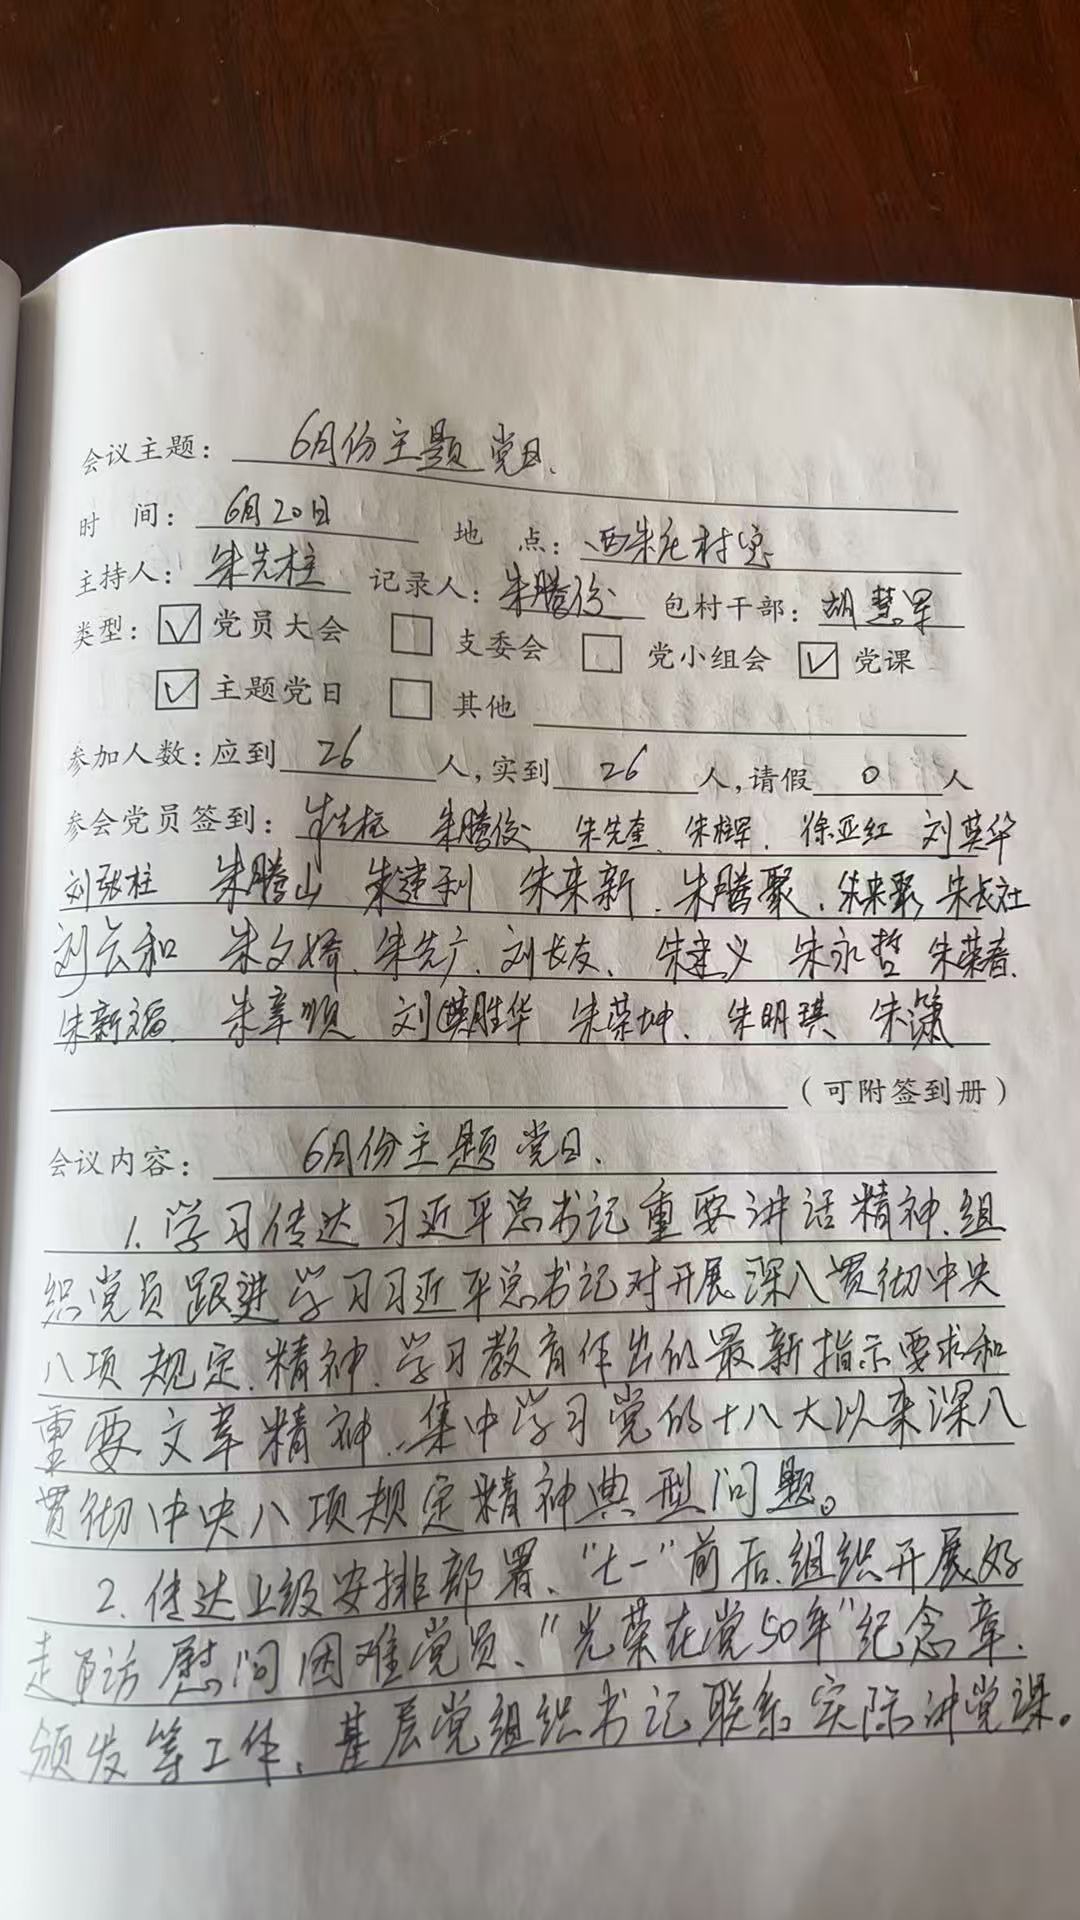 会议主题：6月份主题党日、
时 间：6月20日 地 点：西朱庄村室
主持人：朱先柱 记录人：朱腾俊 包村干部：胡慧军
类型：☑党员大会 □支委会 □党小组会 ☑党课
☑主题党日 □其他
参加人数：应到26人，实到26人，请假0人
参会党员签到：朱先柱 朱腾俊 朱先奎、朱柱军、徐亚红 刘英华
刘张柱 朱腾山 朱建利 朱来新、朱腾聚、朱来聚 朱长社
刘云和 朱文娇、朱先广、刘长友、朱建义 朱永哲 朱荣春、
朱新福、朱章顺 刘胜华 朱荣坤、朱明琪 朱潇
（可附签到册）
会议内容：6月份主题党日、
1、学习传达习近平总书记重要讲话精神、组
织党员跟进学习习近平总书记对开展深入贯彻中央
八项规定、精神、学习教育作出的最新指示要求和
重要文章精神、集中学习党的十八大以来深入
贯彻中央八项规定精神典型问题。
2、传达上级安排部署、"七一"前后、组织开展好
走访慰问困难党员、"光荣在党50年"纪念章、
颁发等工作、基层党组织书记联系实际讲党课。